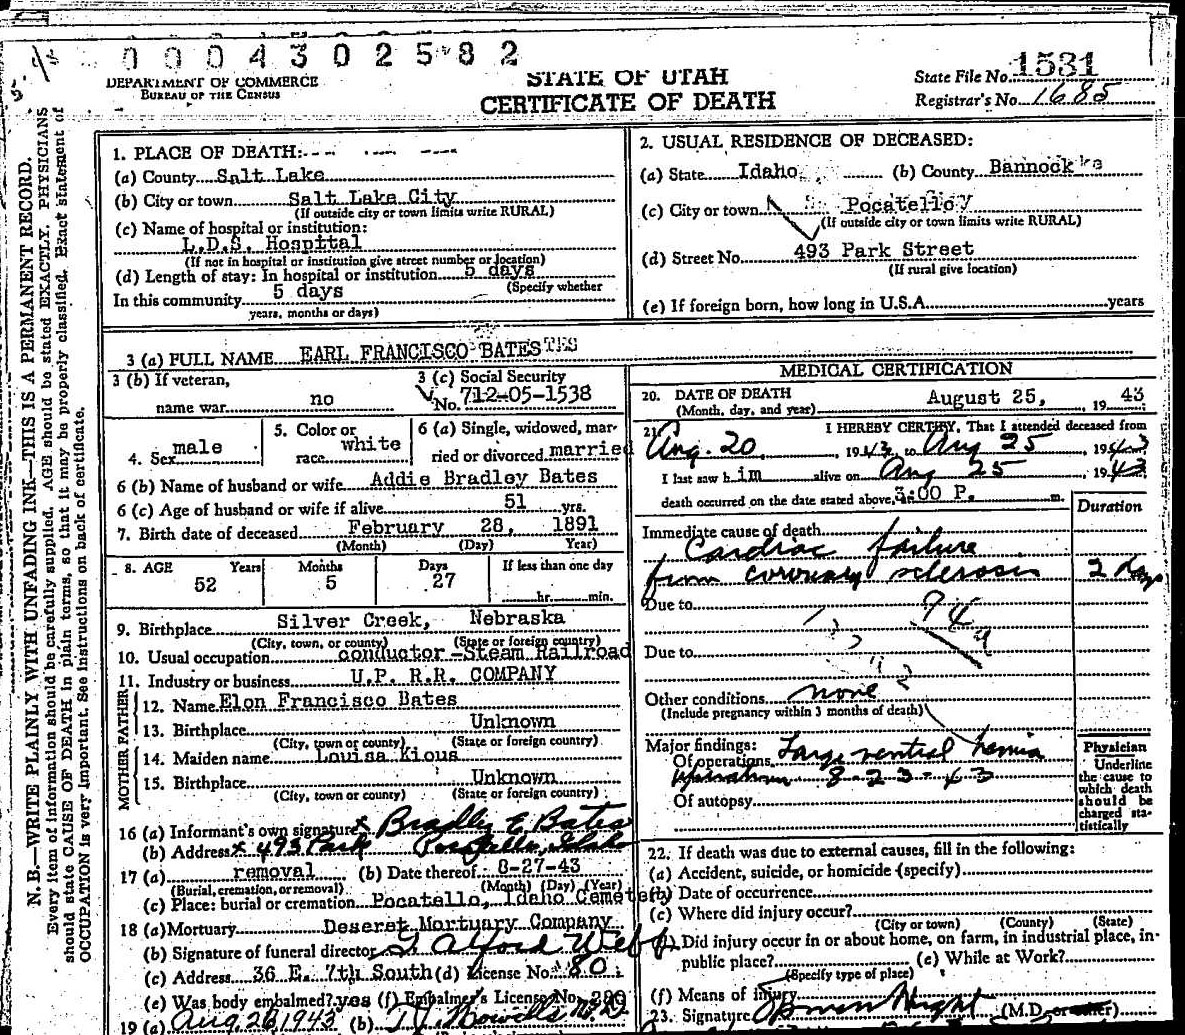 0 0 0 4 3 0 2 5 8 2
DEPARTMENT OF COMMERCE
BUREAU OF THE CENSUS
STATE OF UTAH
CERTIFICATE OF DEATH
State File No. 1531
Registrar's No. 1685
N. B.—WRITE PLAINLY WITH UNFADING INK—THIS IS A PERMANENT RECORD.
Every item of information should be carefully supplied. AGE should be stated EXACTLY. PHYSICIANS
should state CAUSE OF DEATH in plain terms, so that it may be properly classified. Exact statement of
OCCUPATION is very important. See instructions on back of certificate.
1. PLACE OF DEATH:
(a) County Salt Lake
(b) City or town Salt Lake City
(If outside city or town limits write RURAL)
(c) Name of hospital or institution:
L.D.S. Hospital
(If not in hospital or institution give street number or location)
(d) Length of stay: In hospital or institution 5 days
(Specify whether
In this community 5 days
years, months or days)
2. USUAL RESIDENCE OF DECEASED:
(a) State Idaho (b) County Bannock
(c) City or town Pocatello
(If outside city or town limits write RURAL)
(d) Street No. 493 Park Street
(If rural give location)
(e) If foreign born, how long in U.S.A. years
3 (a) FULL NAME EARL FRANCISCO BATES
3 (b) If veteran,
name war no
3 (c) Social Security
No. 712-05-1538
4. Sex male
5. Color or
race white
6 (a) Single, widowed, mar-
ried or divorced married
6 (b) Name of husband or wife Addie Bradley Bates
6 (c) Age of husband or wife if alive 51 yrs.
7. Birth date of deceased February 28, 1891
(Month) (Day) Year)
8. AGE Years Months Days If less than one day
52 5 27 hr. min.
9. Birthplace Silver Creek, Nebraska
(City, town, or county) (State or foreign country)
10. Usual occupation conductor - Steam Railroad
11. Industry or business U.P. R.R. COMPANY
FATHER
12. Name Elon Francisco Bates
13. Birthplace Unknown
(City, town or county) (State or foreign country)
MOTHER
14. Maiden name Louisa Kious
15. Birthplace Unknown
(City, town or county) (State or foreign country)
16 (a) Informant's own signature x Bradley E Bates
(b) Address x 493 Park Pocatello, Idaho
17 (a) removal (b) Date thereof 8-27-43
(Burial, cremation, or removal) (Month) (Day) (Year)
(c) Place: burial or cremation Pocatello, Idaho Cemetery
18 (a) Mortuary Deseret Mortuary Company
(b) Signature of funeral director Alford Webb
(c) Address 36 E. 7th South (d) License No. 80
(e) Was body embalmed? yes (f) Embalmer's License No.
19 (a) Aug 26 1943 (b) M.D.
MEDICAL CERTIFICATION
20. DATE OF DEATH
(Month, day, and year) August 25, 19 43
21. I HEREBY CERTIFY, That I attended deceased from
Aug. 20, 1943, to Aug 25, 1943
I last saw h im alive on Aug 25 1943,
death occurred on the date stated above, 3:00 P. m.
Duration
Immediate cause of death
Cardiac failure
from coronary sclerosis 2 days
Due to 94a
Due to
Other conditions none
(Include pregnancy within 3 months of death)
Major findings:
Of operations Large ventral hernia
Operation 8-23-43
Of autopsy
Physician
Underline
the cause to
which death
should be
charged sta-
tistically
22. If death was due to external causes, fill in the following:
(a) Accident, suicide, or homicide (specify)
(b) Date of occurrence
(c) Where did injury occur?
(City or town) (County) (State)
(d) Did injury occur in or about home, on farm, in industrial place, in
public place? (e) While at Work?
(Specify type of place)
(f) Means of injury
23. Signature Wight (M.D. or other)